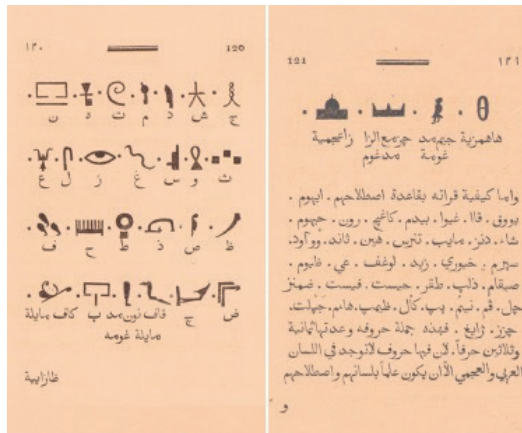 ١٢٠ 120
ج ش د م ت ه ن
ث و س غ ز ل ع
ظ ص ذ ط ح ف
ض ج قاف نون مد پ كاف مايلة
مايلة غومه
ظازابية
121 ١٢١
هاهمزية جيم مد جزمع الزا زاعجمية
غومة مدغوم
واما كيفية قراته بقاعدة اصطلاحهم . ابهوم .
بووق . قاا . غيوا . بيدم . كاغج . رون . جهوم .
شاء . دنز . مايب . تترس . هين . ثاند . وواود .
سيرم . خيوري . زيد . لوغف . عي . ظيوم .
صيقام . ذلب . طقر . حيست . فيست . ضمنز
چل . قم . نيم . پپ . كأل . ظيهب . هام . جهلت .
جزز . ژايغ . فهذه جملة حروفه وعدتها ثمانية
وثلاثين حرفاً . لان فيها حروف لا توجد في اللسان
العربي والعجمي الا ان يكون علماً بلسانهم واصطلاحهم
و